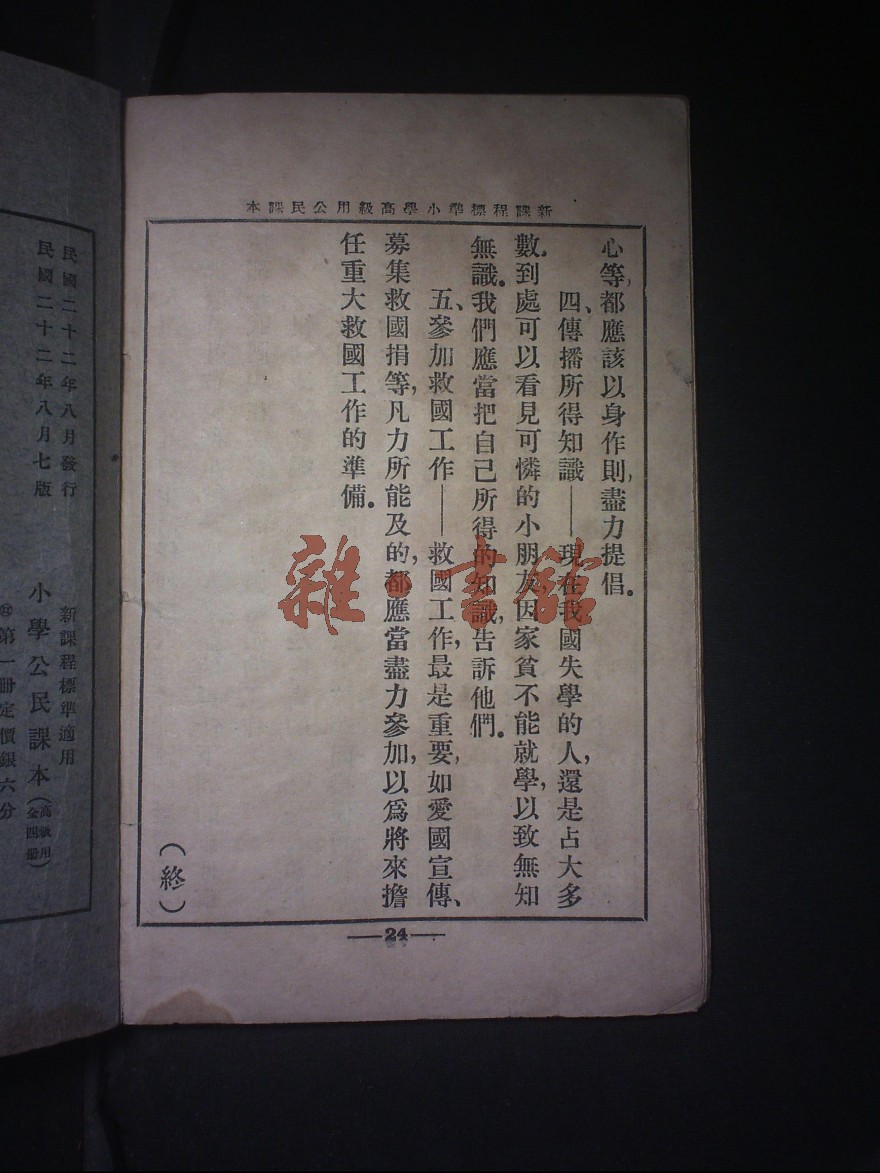 新課程標準小學高級用公民課本
心等,都應該以身作則,盡力提倡。
四、傳播所得知識——現在我國失學的人,還是占大多
數。到處可以看見可憐的小朋友,因家貧不能就學,以致無知
無識。我們應當把自己所得的知識,告訴他們。
五、參加救國工作——救國工作,最是重要,如愛國宣傳、
募集救國捐等,凡力所能及的,都應當盡力參加,以爲將來擔
任重大救國工作的準備。
(終)
—24—
雜·書館
民國二十二年八月發行
民國二十二年八月七版
新課程標準適用
小學公民課本(高級用全四册)
第一册定價銀六分